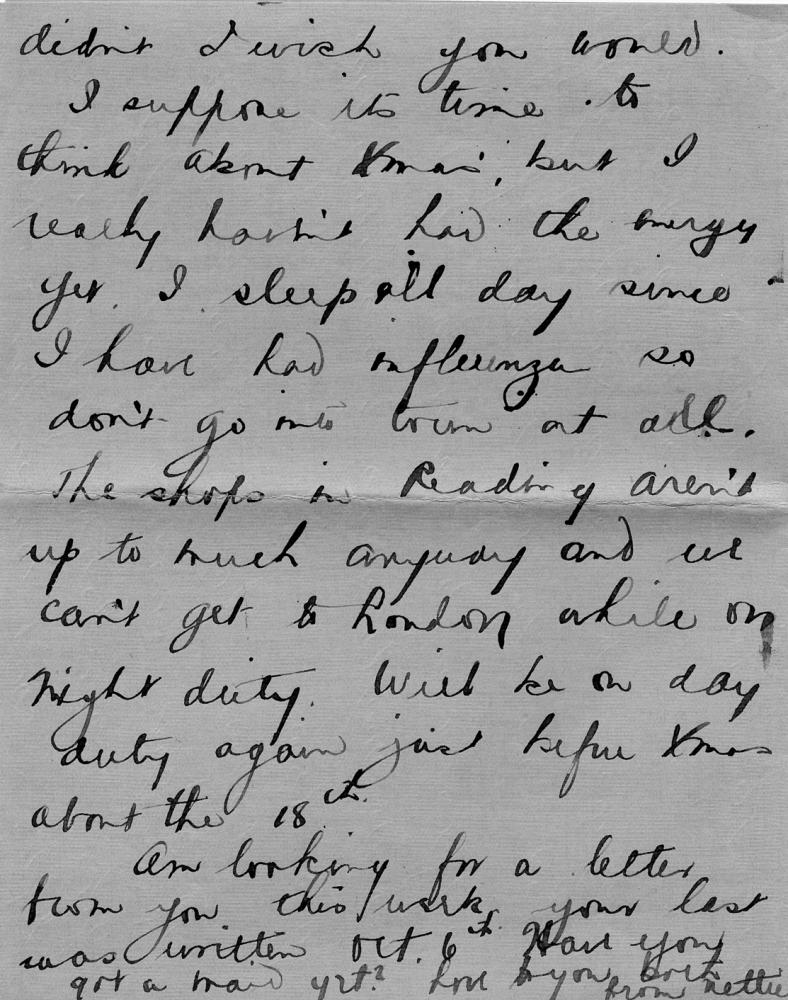 didn't I wish you would.
I suppose its time to
think about Xmas, but I
really havn't had the energy
yet. I sleep all day since
I have had influenza so
don't go into town at all.
The shops in Reading aren't
up to much anyway and we
can't get to London while on
night duty. Will be on day
duty again just before Xmas
about the 18th.
Am looking for a letter
from you this week, your last
was written Oct. 6th. Have you
got a maid yet? Love to you both
from Nettie